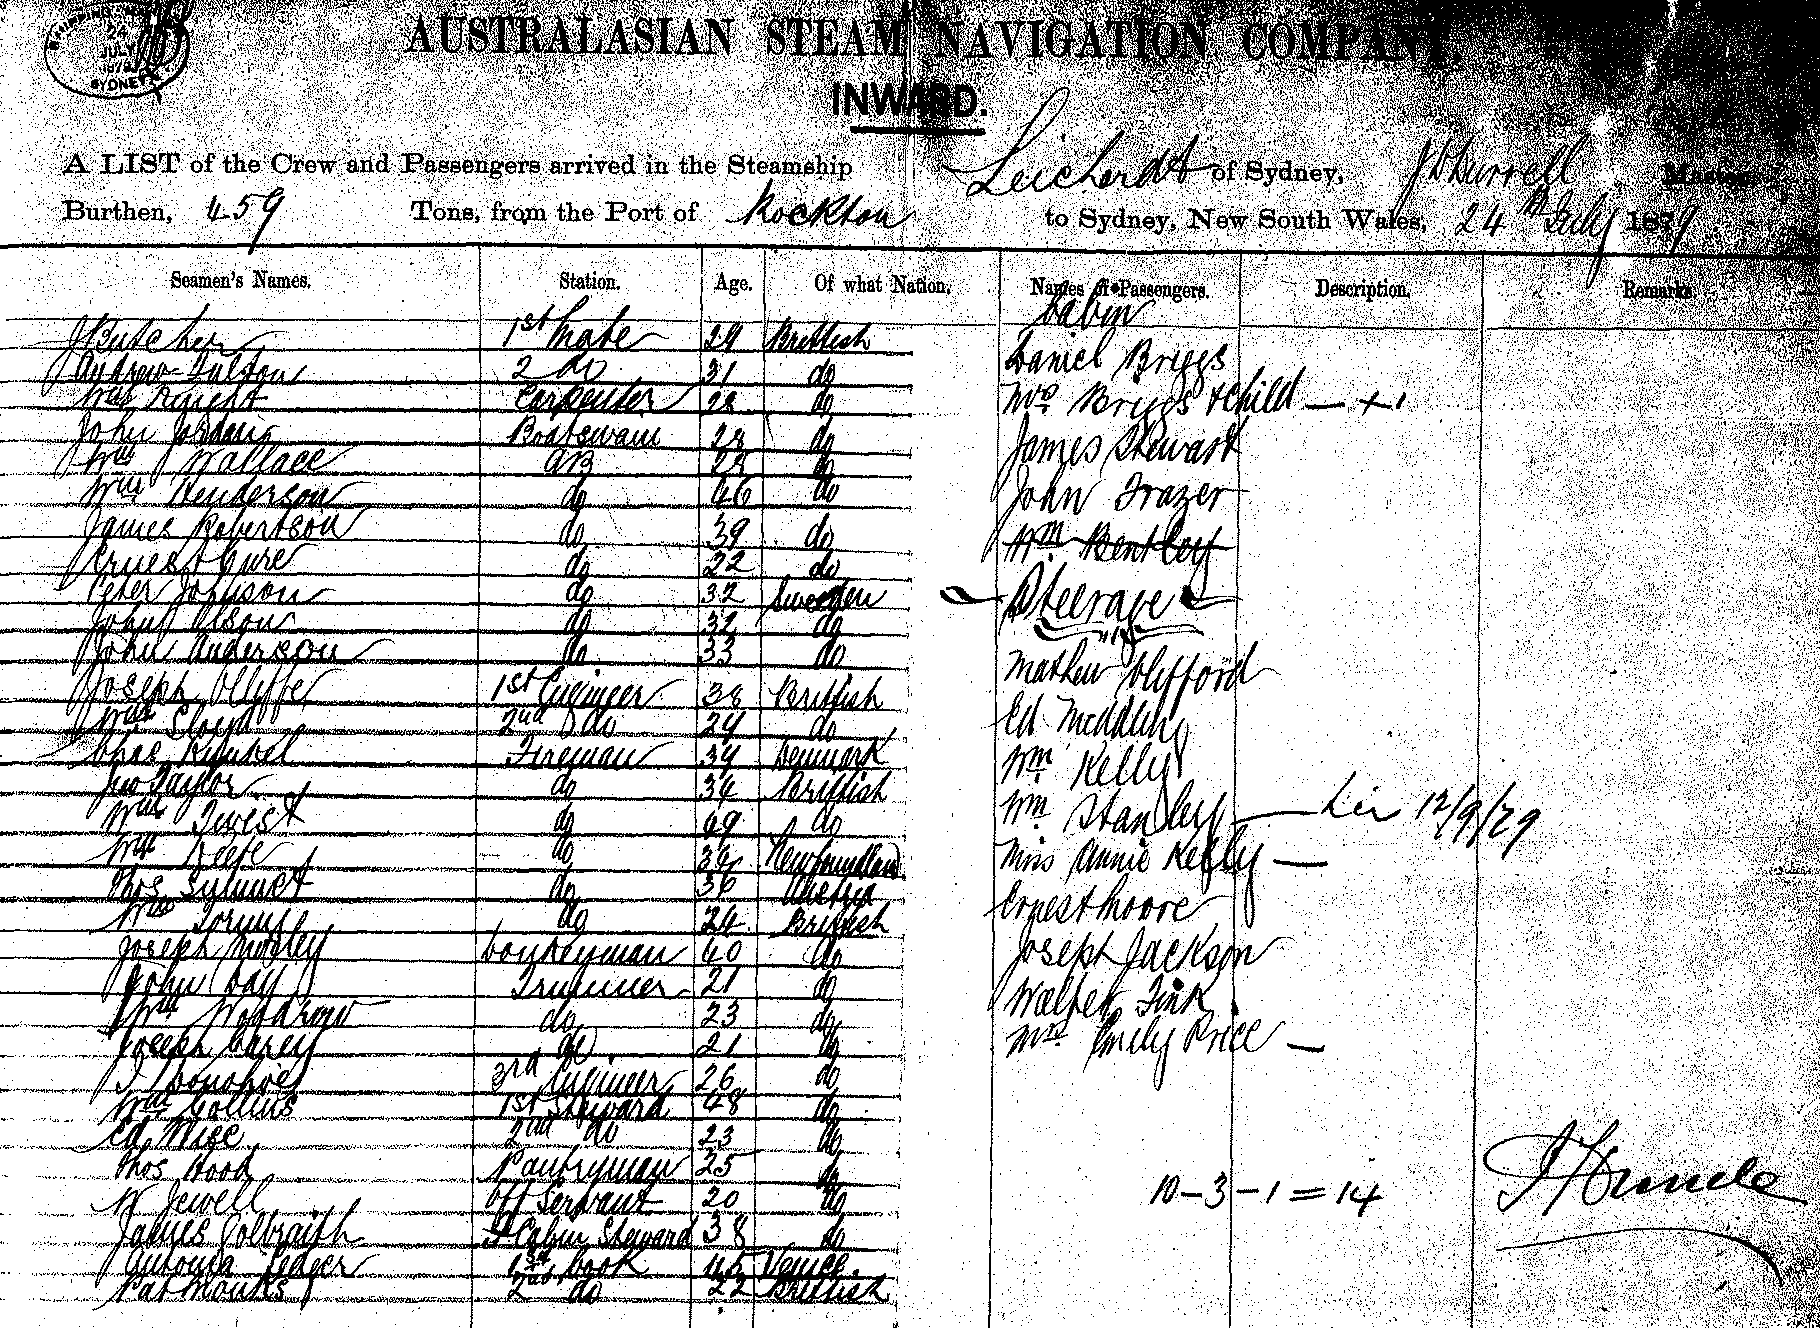 SHIPPING
24
JULY
SYDNEY
AUSTRALASIAN STEAM NAVIGATION COMPANY
INWARD.
A LIST of the Crew and Passengers arrived in the Steamship Leichardt of Sydney, Master
Burthen, 459 Tons, from the Port of Rockton to Sydney, New South Wales, 24th July 1879
Seamen's Names. Station. Age. Of what Nation. Names of Passengers. Description. Remarks
Cabin
J Butcher 1st Mate 29 Brittish
Andrew Fulton 2 do 31 do
Wm Knight Carpenter 28 do
John Jordan Boatswain 28 do
Wm Wallace AB 28 do
Wm Henderson do 46 do
James Robertson do 39 do
Ernest Cure do 22 do
Peter Johnson do 32 Sweeden
John Olson do 32 do
John Anderson do 33 do
Joseph Olliffe 1st Engineer 38 Brittish
Wm Lloyd 2nd do 29 do
Chas Fireman 34 Denmark
Jno Taylor do 34 Brittish
Wm Twest do 49 do
Wm Keefe do 34 Newfoundland
Thos do 36 Austria
Wm do 24 Brittish
Joseph Morley Donkeyman 40 do
John Day Trimmer 21 do
Wm Woodrow do 23 do
Joseph Carey do 21 do
T Donohoe 3rd Engineer 26 do
Wm Collins 1st Steward 48 do
Ed Wise 2nd do 23 do
Thos Hood Pantryman 25 do
W Jewell Off Servant 20 do
James Golbraith Cabin Steward 38 do
Antonia Ledger 1st Cook 45 Venice
Pat Monks 2nd do 22 Brittish
Daniel Briggs
Mrs Briggs & child — + 1
James Stewart
John Frazer
Wm Bentley
Steerage
Mathew Clifford
Ed
Wm Kelly
Wm Stanley — 12/9/79
Miss Annie Kelly —
Ernest Moore
Joseph Jackson
Walter Fink
Mrs Emily Price —
10 – 3 – 1 = 14